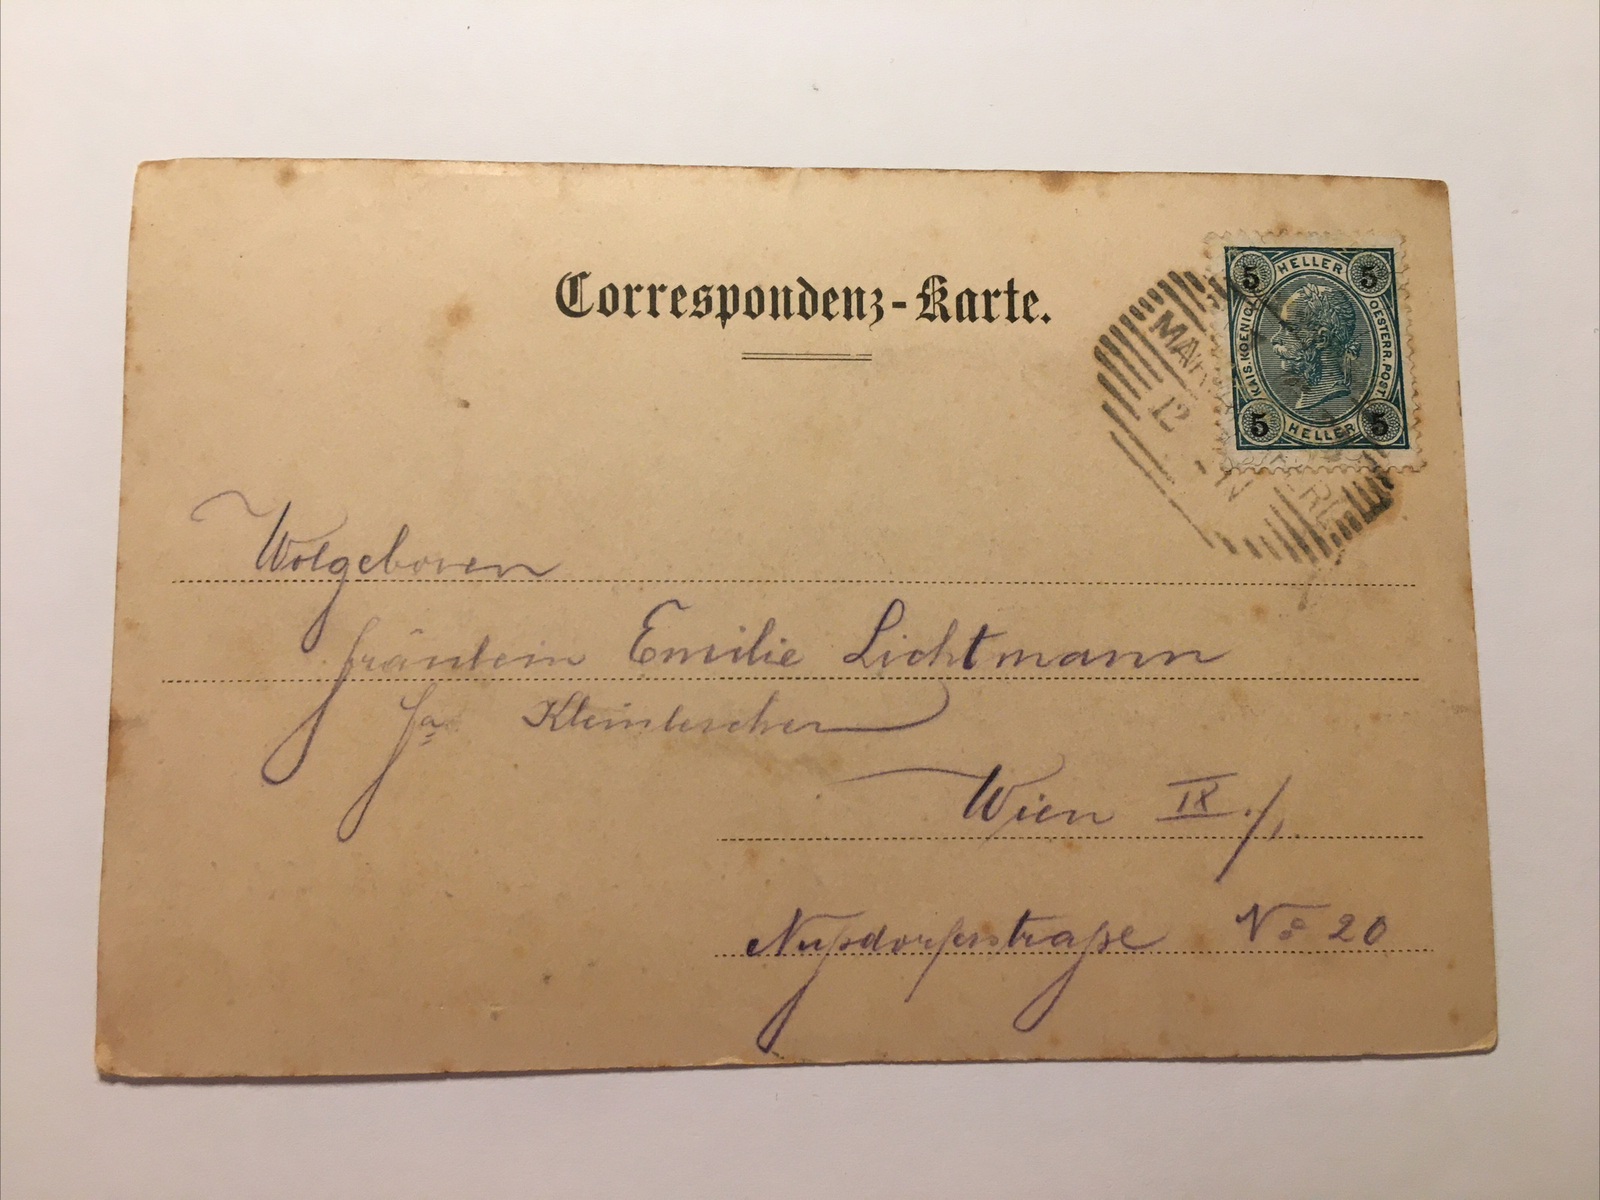 Correspondenz-Karte.
5 HELLER 5
KAIS. KOENIGL. OESTERR. POST
5 HELLER 5
12
Wolgeboren
Fräulein Emilie Lichtmann
Fa
Wien IX./1
Nußdorferstraße No 20